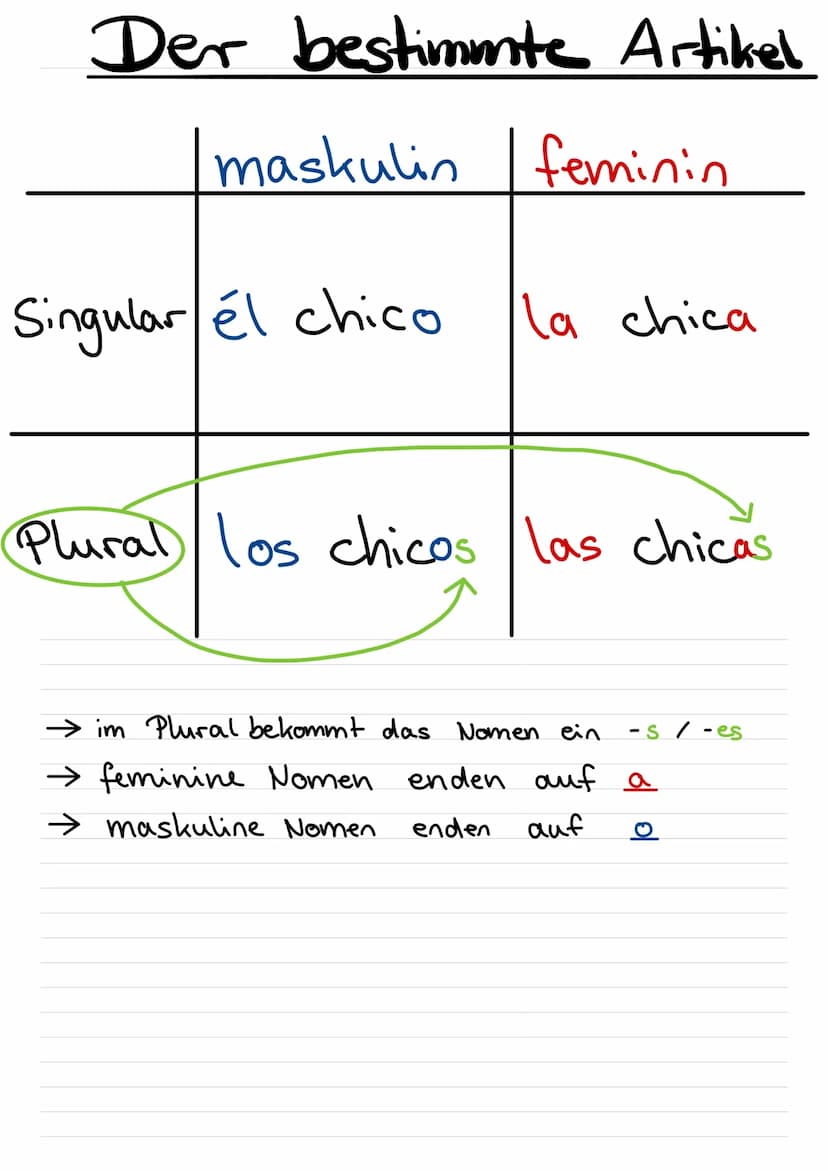 Der bestimmte Artikel
maskulin feminin
Singular él chico la chica
Plural los chicos las chicas
→ im Plural bekommt das Nomen ein -s / -es
→ feminine Nomen enden auf a
→ maskuline Nomen enden auf o